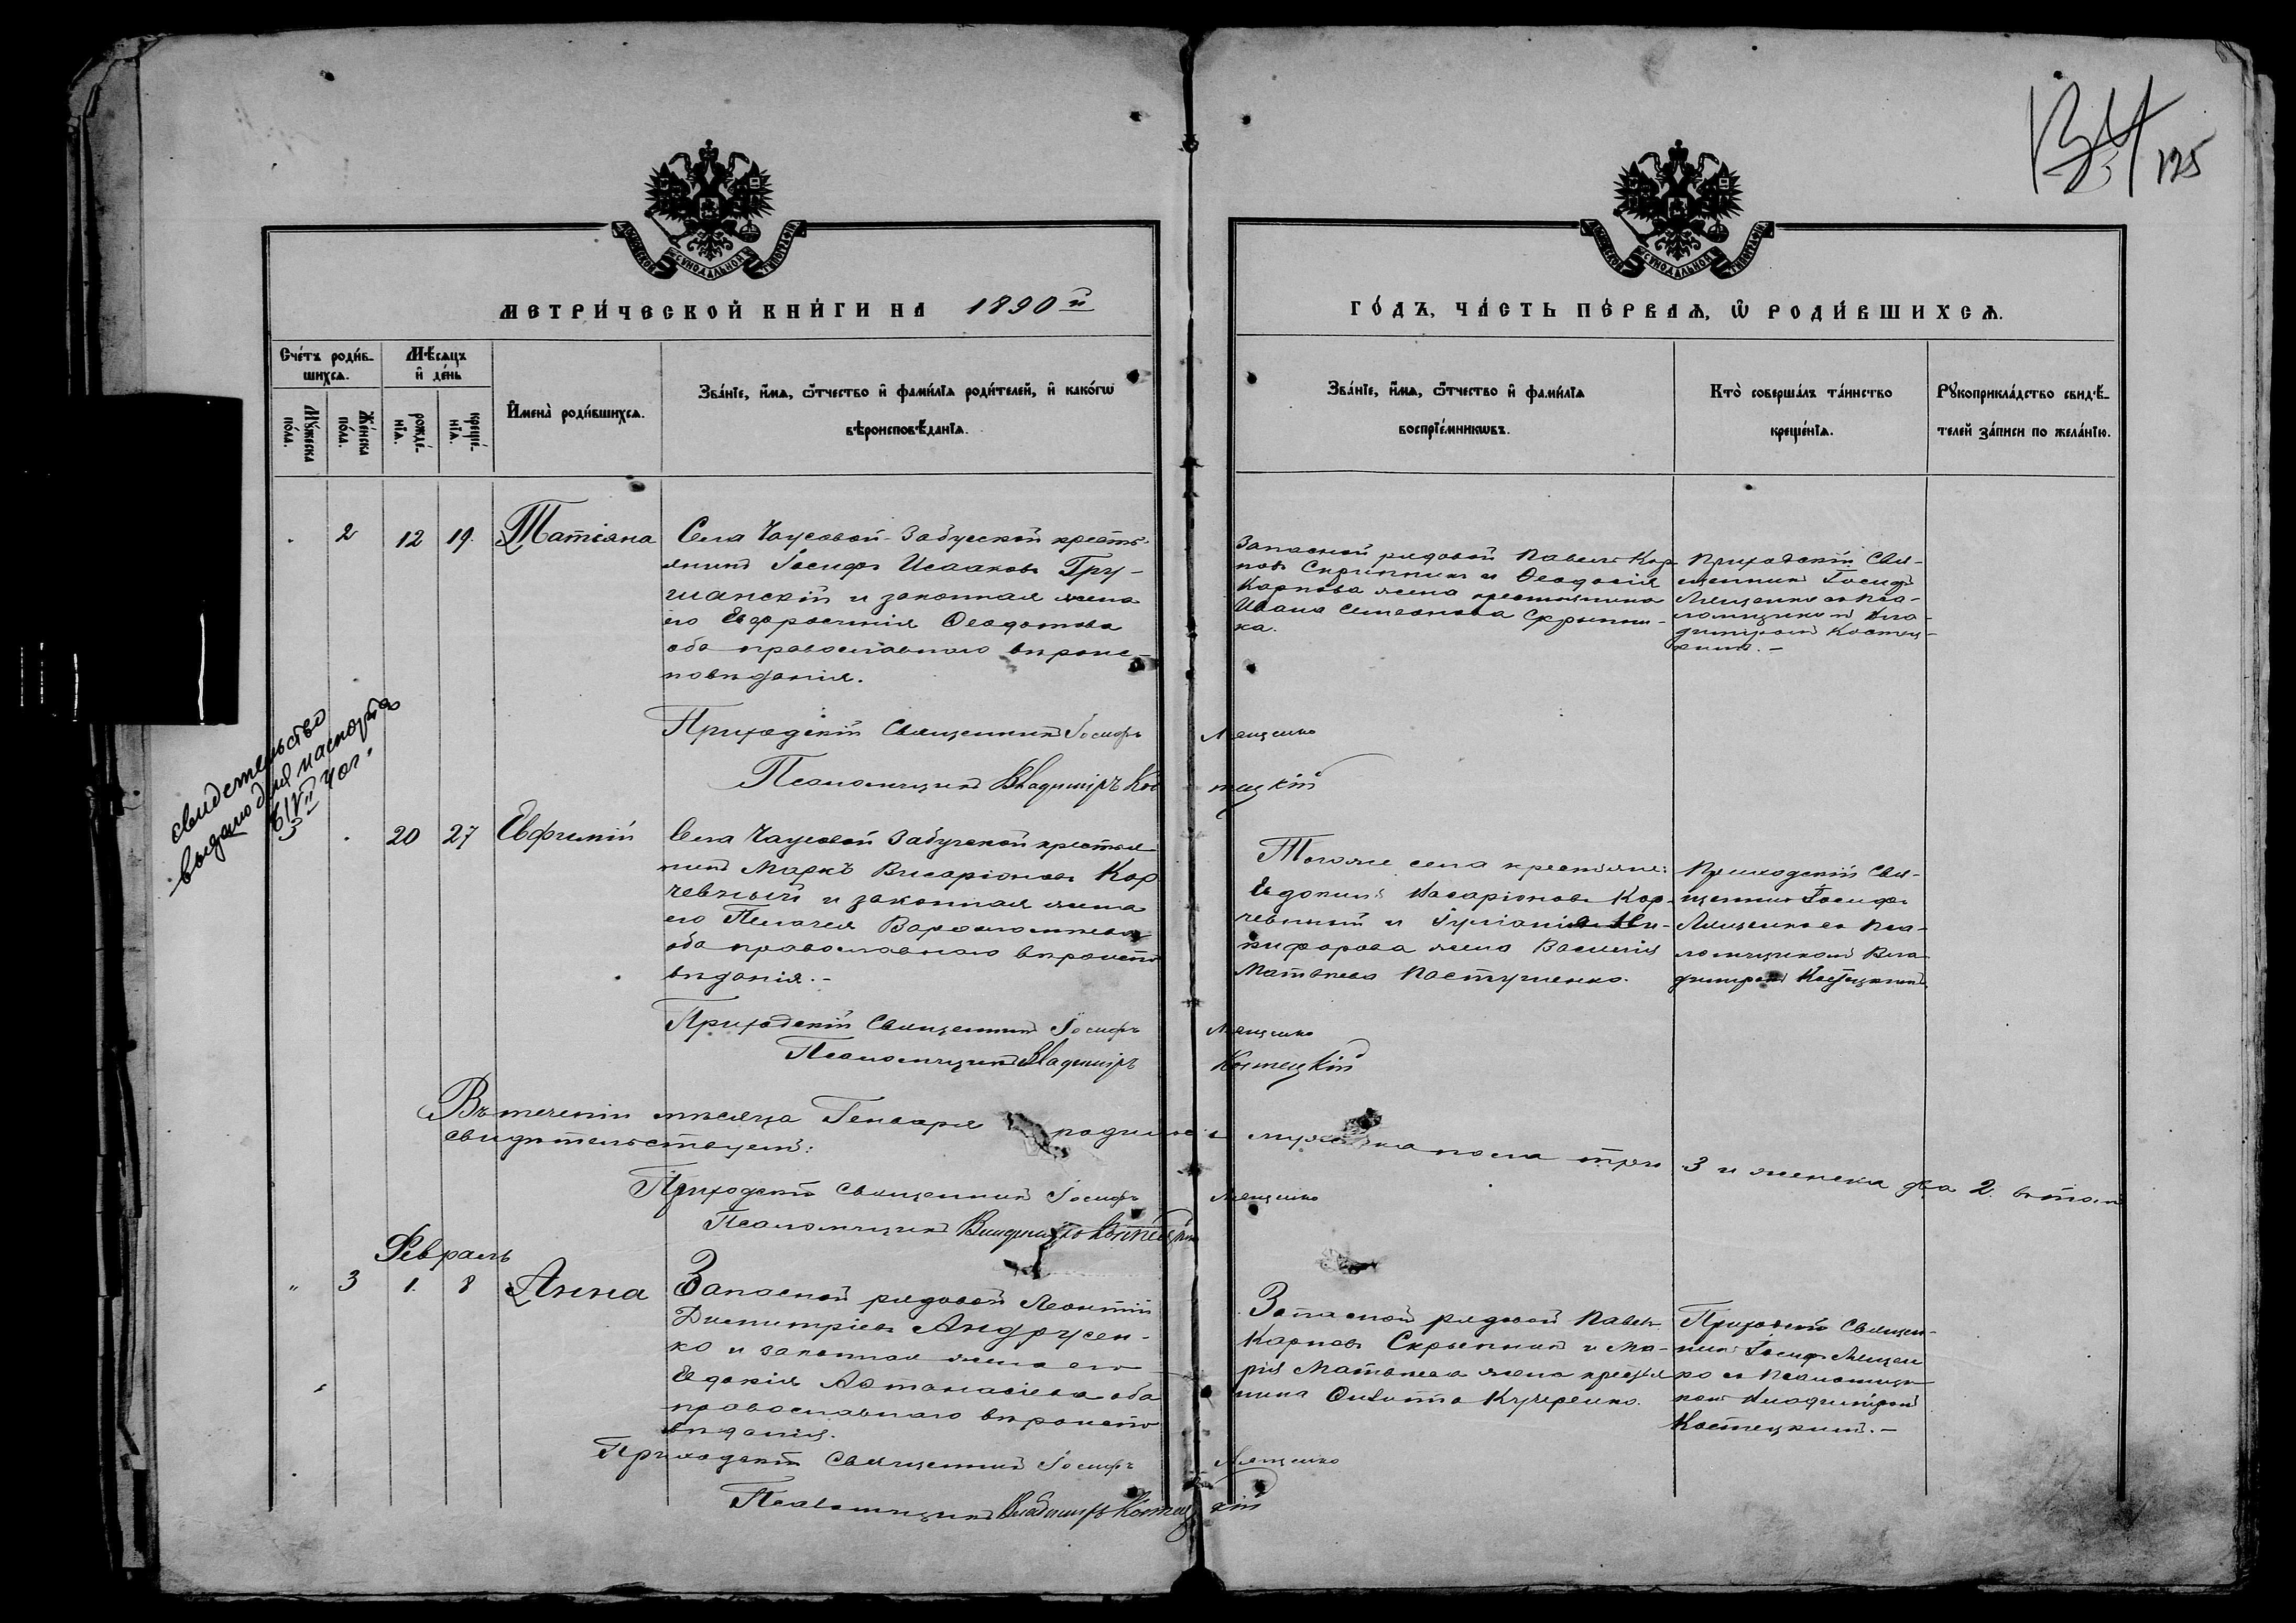 125
МЕТРИ́ЧЕСКОЙ КНИ́ГИ НА 1890й
ГО́ДЪ, ЧА́СТЬ ПЕ́РВАѦ, Ѡ РОДИ́ВШИХСѦ.
Сче́тъ роди́в-
шихсѧ.
Мꙋ́жеска
по́ла.
Же́нска
по́ла.
Мѣ́сѧцъ
и҆ де́нь
рожде́-
нїѧ.
креще́-
нїѧ.
И҆мена̀ роди́вшихсѧ.
Зва́нїе, и҆́мѧ, ѻ҆́тчество и҆ фами́лїѧ роди́телей, и҆ како́гѡ
вѣроисповѣ́данїѧ.
Зва́нїе, и҆́мѧ, ѻ҆́тчество и҆ фами́лїѧ
воспрїе́мникѡвъ.
Кто̀ соверша́лъ та́инство
креще́нїѧ.
Рꙋкоприкла́дство свидѣ́-
телей за́писи по жела́нїю.
2 12 19. Татіяна
Села Чаусовой-Забугской кресть-
янинъ Іосифъ Исааковъ Гру-
шанскій и законная жена
его Евфросинія Ѳеодотова
оба православнаго вѣроис-
повѣданія.
Запасной рядовой Павелъ Кар-
повъ Скрипникъ и Ѳеодосія
Карпова жена крестьянина
Ивана Симеонова Скрыпни-
ка.
Приходскій Свя-
щенникъ Іосифъ
Лященко съ Пса-
ломщикомъ Вла-
диміромъ Костец-
кимъ.-
Приходскій Священникъ Іосифъ Лященко
Псаломщикъ Владиміръ Костецкій
свидетельство
выдано для паспорта
6/VII 40г.
3 20 27 Евфимій
Села Чаусовой Забугской крестья-
нинъ Маркъ Висаріоновъ Кор-
чевный и законная жена
его Пелагея Варѳоломеева
оба православнаго вѣроиспо-
вѣданія.-
Того же села крестьяне:
Евдокимъ Висаріоновъ Кор-
чевный и Іуліанія Ни-
кифорова жена Василія
Матвѣева Пастушенко.
Приходскій Свя-
щенникъ Іосифъ
Лященко съ Пса-
ломщикомъ Вла-
диміромъ Костецкимъ.
Приходскій Священникъ Іосифъ Лященко
Псаломщикъ Владиміръ Костецкій
Въ теченіи мѣсяца Генваря родилось мужеска пола три 3 и женска два 2. въ томъ
свидѣтельствуемъ:
Приходскій Священникъ Іосифъ Лященко
Псаломщикъ Владиміръ Костецкій
Февраль
" 3 1. 8 Анна
Запасной рядовой Леонтій
Димитріевъ Андрусен-
ко и законная жена его
Евдокія Аѳанасіева оба
православнаго вѣроиспо-
вѣданія.
Запасной рядовой Павелъ
Карповъ Скрыпникъ и Ма-
рія Матвѣева жена крестья-
нина Кучеренко.
Приходскій Священ-
никъ Іосифъ Лящен-
ко съ Псаломщи-
комъ Владиміромъ
Костецкимъ.-
Приходскій Священникъ Іосифъ Лященко
Псаломщикъ Владиміръ Костецкій